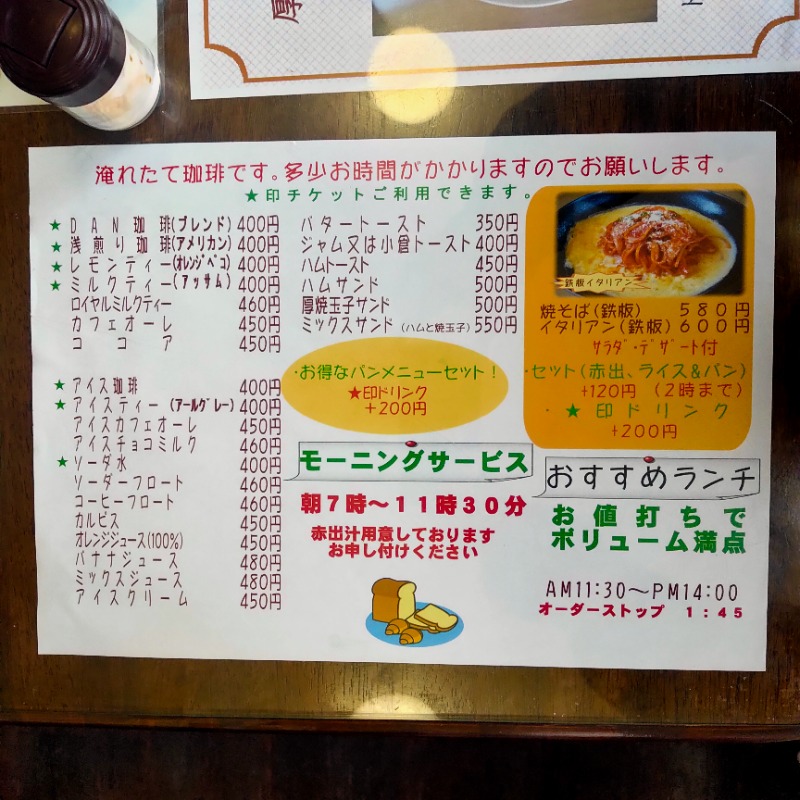 厚
淹れたて珈琲です。多少お時間がかかりますのでお願いします。
★印チケットご利用できます。
★ DAN珈琲(ブレンド) 400円
★ 浅煎り珈琲(アメリカン) 400円
★ レモンティー(オレンジペコ) 400円
★ ミルクティー(アッサム) 400円
ロイヤルミルクティー 460円
カフェオーレ 450円
ココア 450円
★ アイス珈琲 400円
★ アイスティー(アールグレー) 400円
アイスカフェオーレ 450円
アイスチョコミルク 460円
★ ソーダ水 400円
ソーダーフロート 460円
コーヒーフロート 460円
カルピス 450円
オレンジジュース(100%) 450円
バナナジュース 480円
ミックスジュース 480円
アイスクリーム 450円
バタートースト 350円
ジャム又は小倉トースト 400円
ハムトースト 450円
ハムサンド 500円
厚焼玉子サンド 500円
ミックスサンド(ハムと焼玉子) 550円
・お得なパンメニューセット!
★印ドリンク
+200円
モーニングサービス
朝7時~11時30分
赤出汁用意しております
お申し付けください
鉄板イタリアン
焼そば(鉄板) 580円
イタリアン(鉄板) 600円
サラダ・デザート付
・セット(赤出、ライス&パン)
+120円 (2時まで)
・★印ドリンク
+200円
おすすめランチ
お値打ちで
ボリューム満点
AM11:30~PM14:00
オーダーストップ 1:45